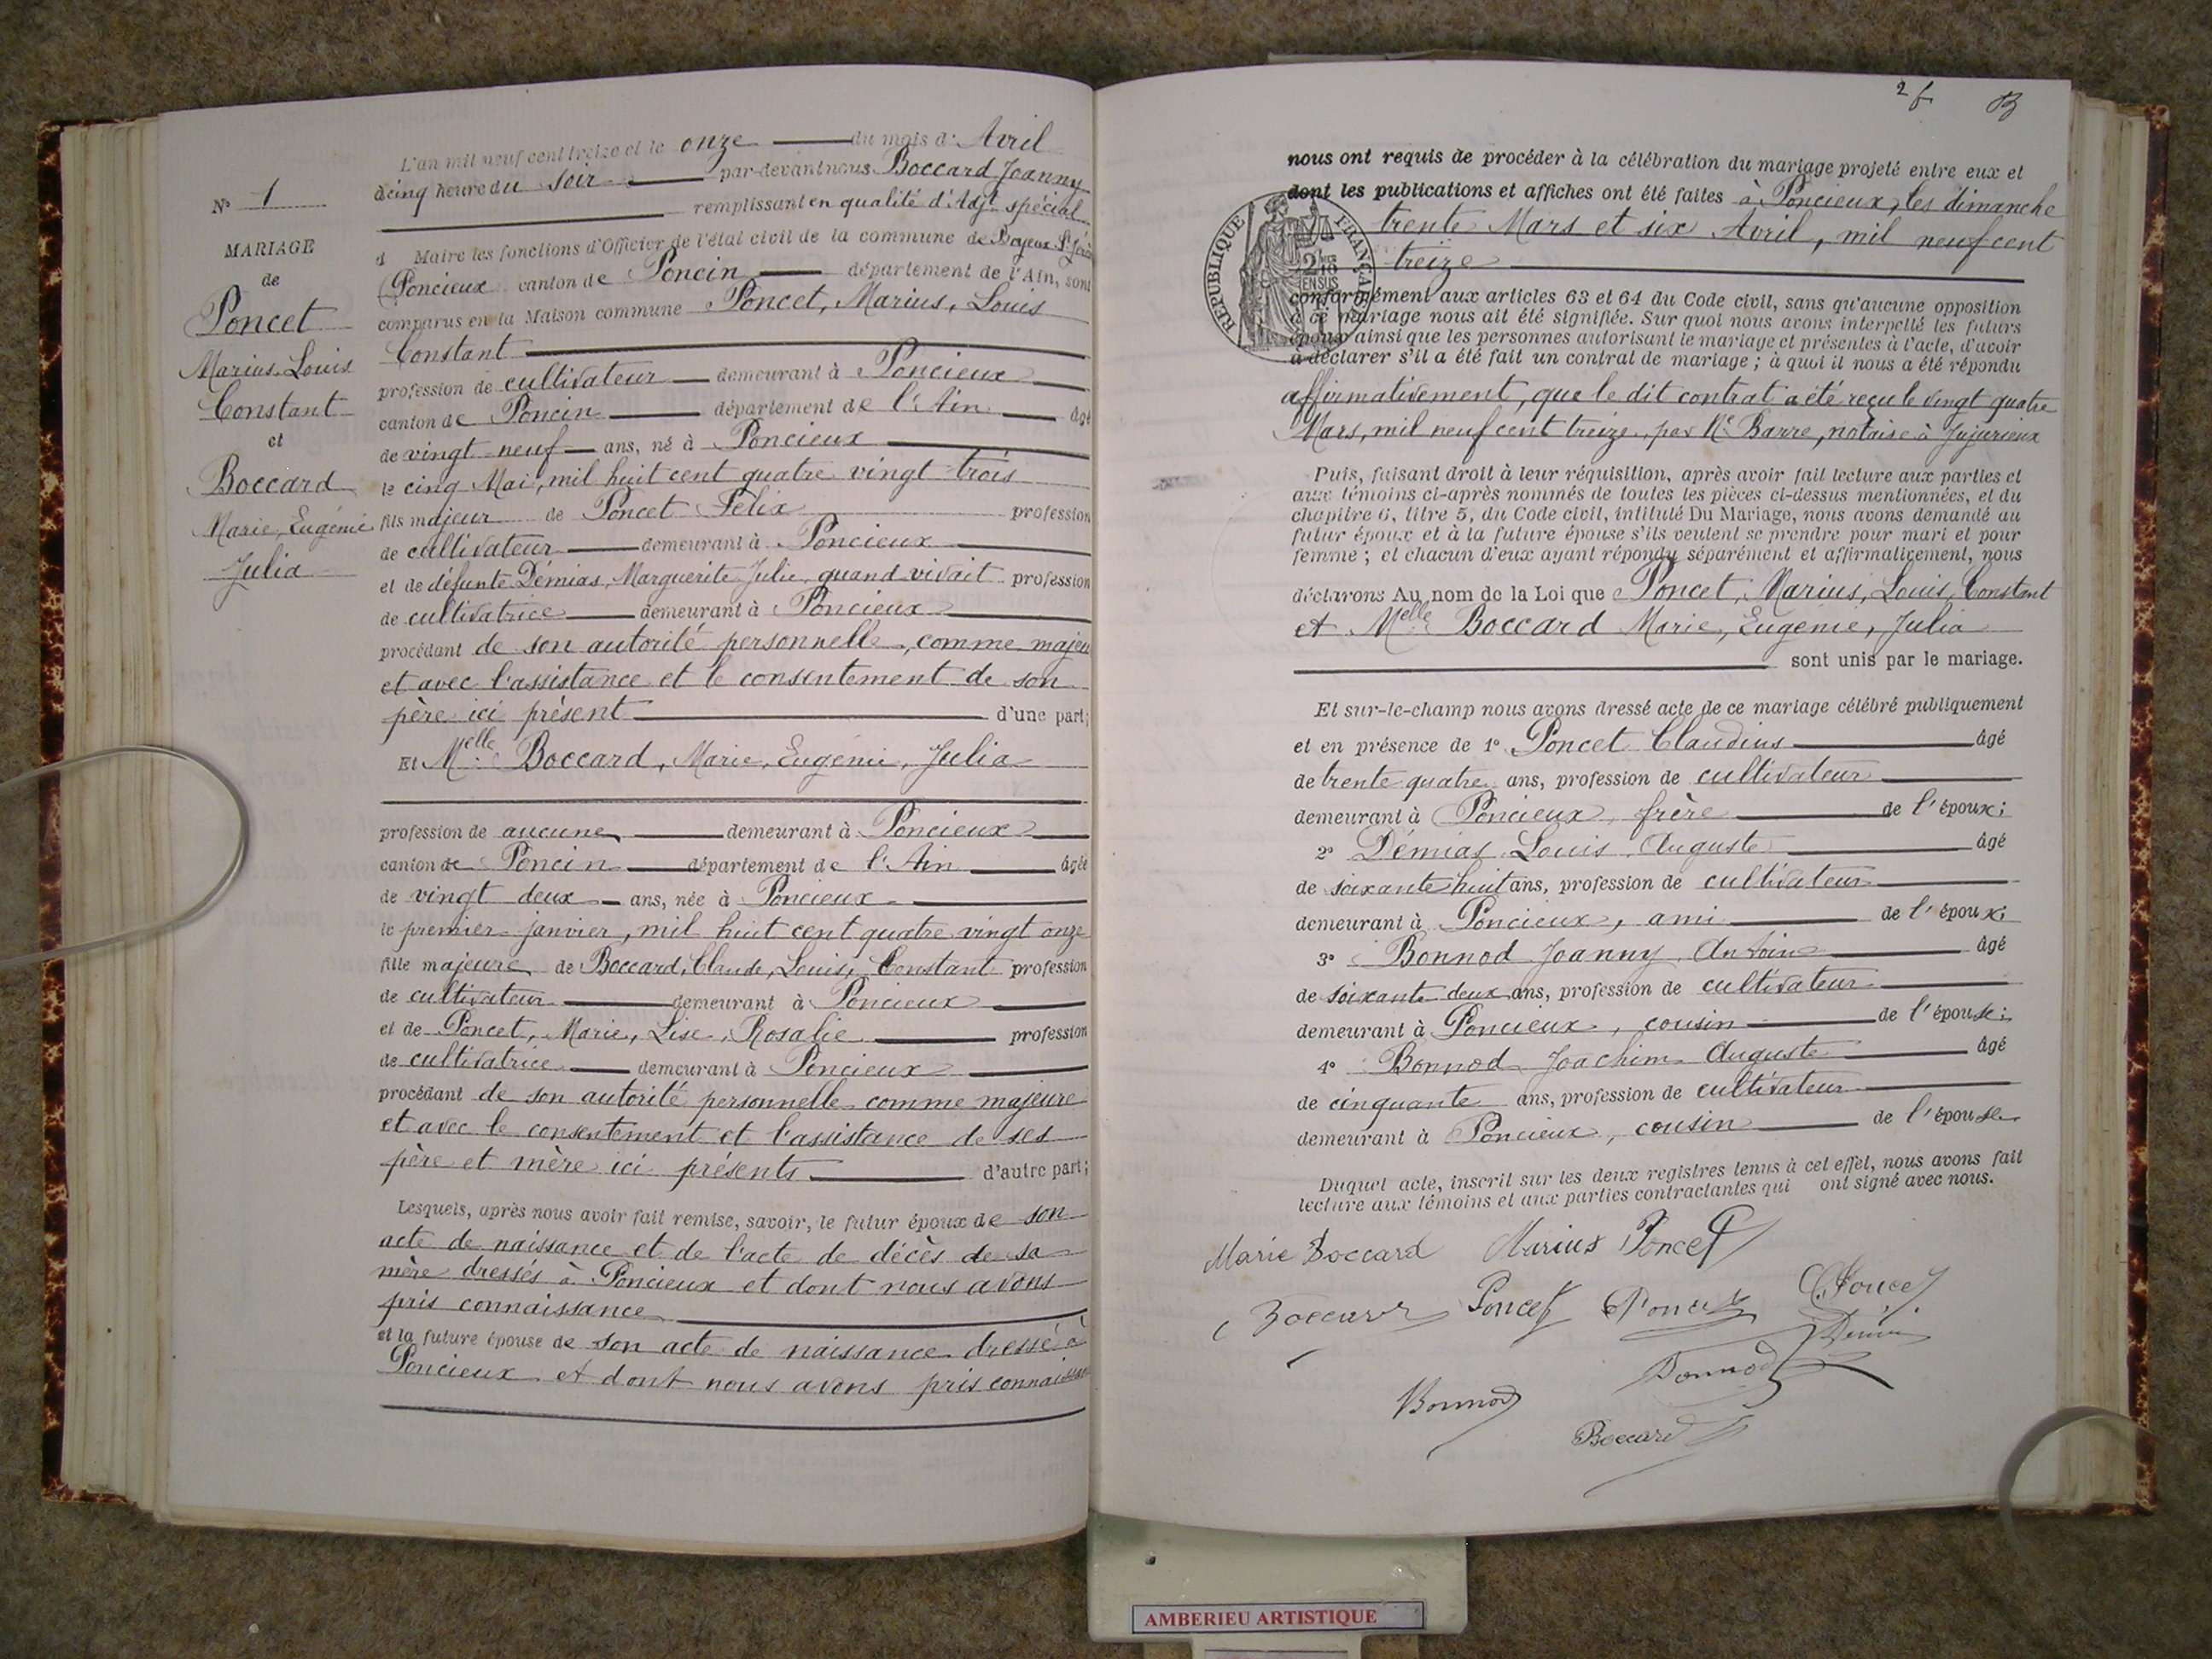 L'an mil neuf cent treize et le onze du mois d' Avril
à cinq heure du soir par-devant nous Boccard Joanny
remplissant en qualité d'Adjt spécial
Maire les fonctions d'Officier de l'état civil de la commune de Boyeux St Jérôme
Poncieux canton de Poncin département de l'Ain, sont
comparus en la Maison commune Poncet, Marius, Louis
Constant
profession de cultivateur demeurant à Poncieux
canton de Poncin département de l'Ain âgé
de vingt-neuf ans, né à Poncieux
le cinq Mai, mil huit cent quatre vingt-trois
fils majeur de Poncet Félix profession
de cultivateur demeurant à Poncieux
et de défunte Démias, Marguerite Julie, quand vivait profession
de cultivatrice demeurant à Poncieux
procédant de son autorité personnelle, comme majeu
et avec l'assistance et le consentement de son
père ici présent d'une part;
Et Melle Boccard, Marie, Eugénie, Julia
profession de aucune demeurant à Poncieux
canton de Poncin département de l'Ain âgée
de vingt deux ans, née à Poncieux
le premier janvier, mil huit cent quatre vingt onze
fille majeure de Boccard, Claude, Louis, Constant profession
de cultivateur demeurant à Poncieux
et de Poncet, Marie, Lise, Rosalie profession
de cultivatrice demeurant à Poncieux
procédant de son autorité personnelle comme majeure
et avec le consentement et l'assistance de ses
père et mère ici présents d'autre part;
Lesquels, après nous avoir fait remise, savoir, le futur époux de son
acte de naissance et de l'acte de décès de sa
mère dressés à Poncieux et dont nous avons
pris connaissance
et la future épouse de son acte de naissance dressé à
Poncieux et dont nous avons pris connaissance
N° 1
MARIAGE
de
Poncet
Marius, Louis
Constant
et
Boccard
Marie, Eugénie
Julia
2 f
nous ont requis de procéder à la célébration du mariage projeté entre eux et
dont les publications et affiches ont été faites à Poncieux, les dimanche
trente Mars et six Avril, mil neuf cent
treize
RÉPUBLIQUE FRANÇAISE
conformément aux articles 63 et 64 du Code civil, sans qu'aucune opposition
à ce mariage nous ait été signifiée. Sur quoi nous avons interpellé les futurs
époux ainsi que les personnes autorisant le mariage et présentes à l'acte, d'avoir
à déclarer s'il a été fait un contrat de mariage; à quoi il nous a été répondu
affirmativement, que le dit contrat a été reçu le vingt quatre
Mars, mil neuf cent treize, par Me Barre, notaire à Jujurieux
Puis, faisant droit à leur réquisition, après avoir fait lecture aux parties et
aux témoins ci-après nommés de toutes les pièces ci-dessus mentionnées, et du
chapitre 6, titre 5, du Code civil, intitulé Du Mariage, nous avons demandé au
futur époux et à la future épouse s'ils veulent se prendre pour mari et pour
femme; et chacun d'eux ayant répondu séparément et affirmativement, nous
déclarons Au nom de la Loi que Poncet, Marius, Louis, Constant
et Melle Boccard Marie, Eugénie, Julia
sont unis par le mariage.
Et sur-le-champ nous avons dressé acte de ce mariage célébré publiquement
et en présence de 1° Poncet Claudius âgé
de trente quatre ans, profession de cultivateur
demeurant à Poncieux, frère de l'époux;
2° Démias Louis Auguste âgé
de soixante huit ans, profession de cultivateur
demeurant à Poncieux, ami de l'époux;
3° Bonnod Joanny Antoine âgé
de soixante deux ans, profession de cultivateur
demeurant à Poncieux, cousin de l'épouse;
4° Bonnod Joachim Auguste âgé
de cinquante ans, profession de cultivateur
demeurant à Poncieux, cousin de l'épouse
Duquel acte, inscrit sur les deux registres tenus à cet effet, nous avons fait
lecture aux témoins et aux parties contractantes qui ont signé avec nous.
Marie Boccard Marius Poncet
Boccard Poncet Poncet C. Poncet
Démias
Bonnod
Bonnod
Boccard
AMBERIEU ARTISTIQUE